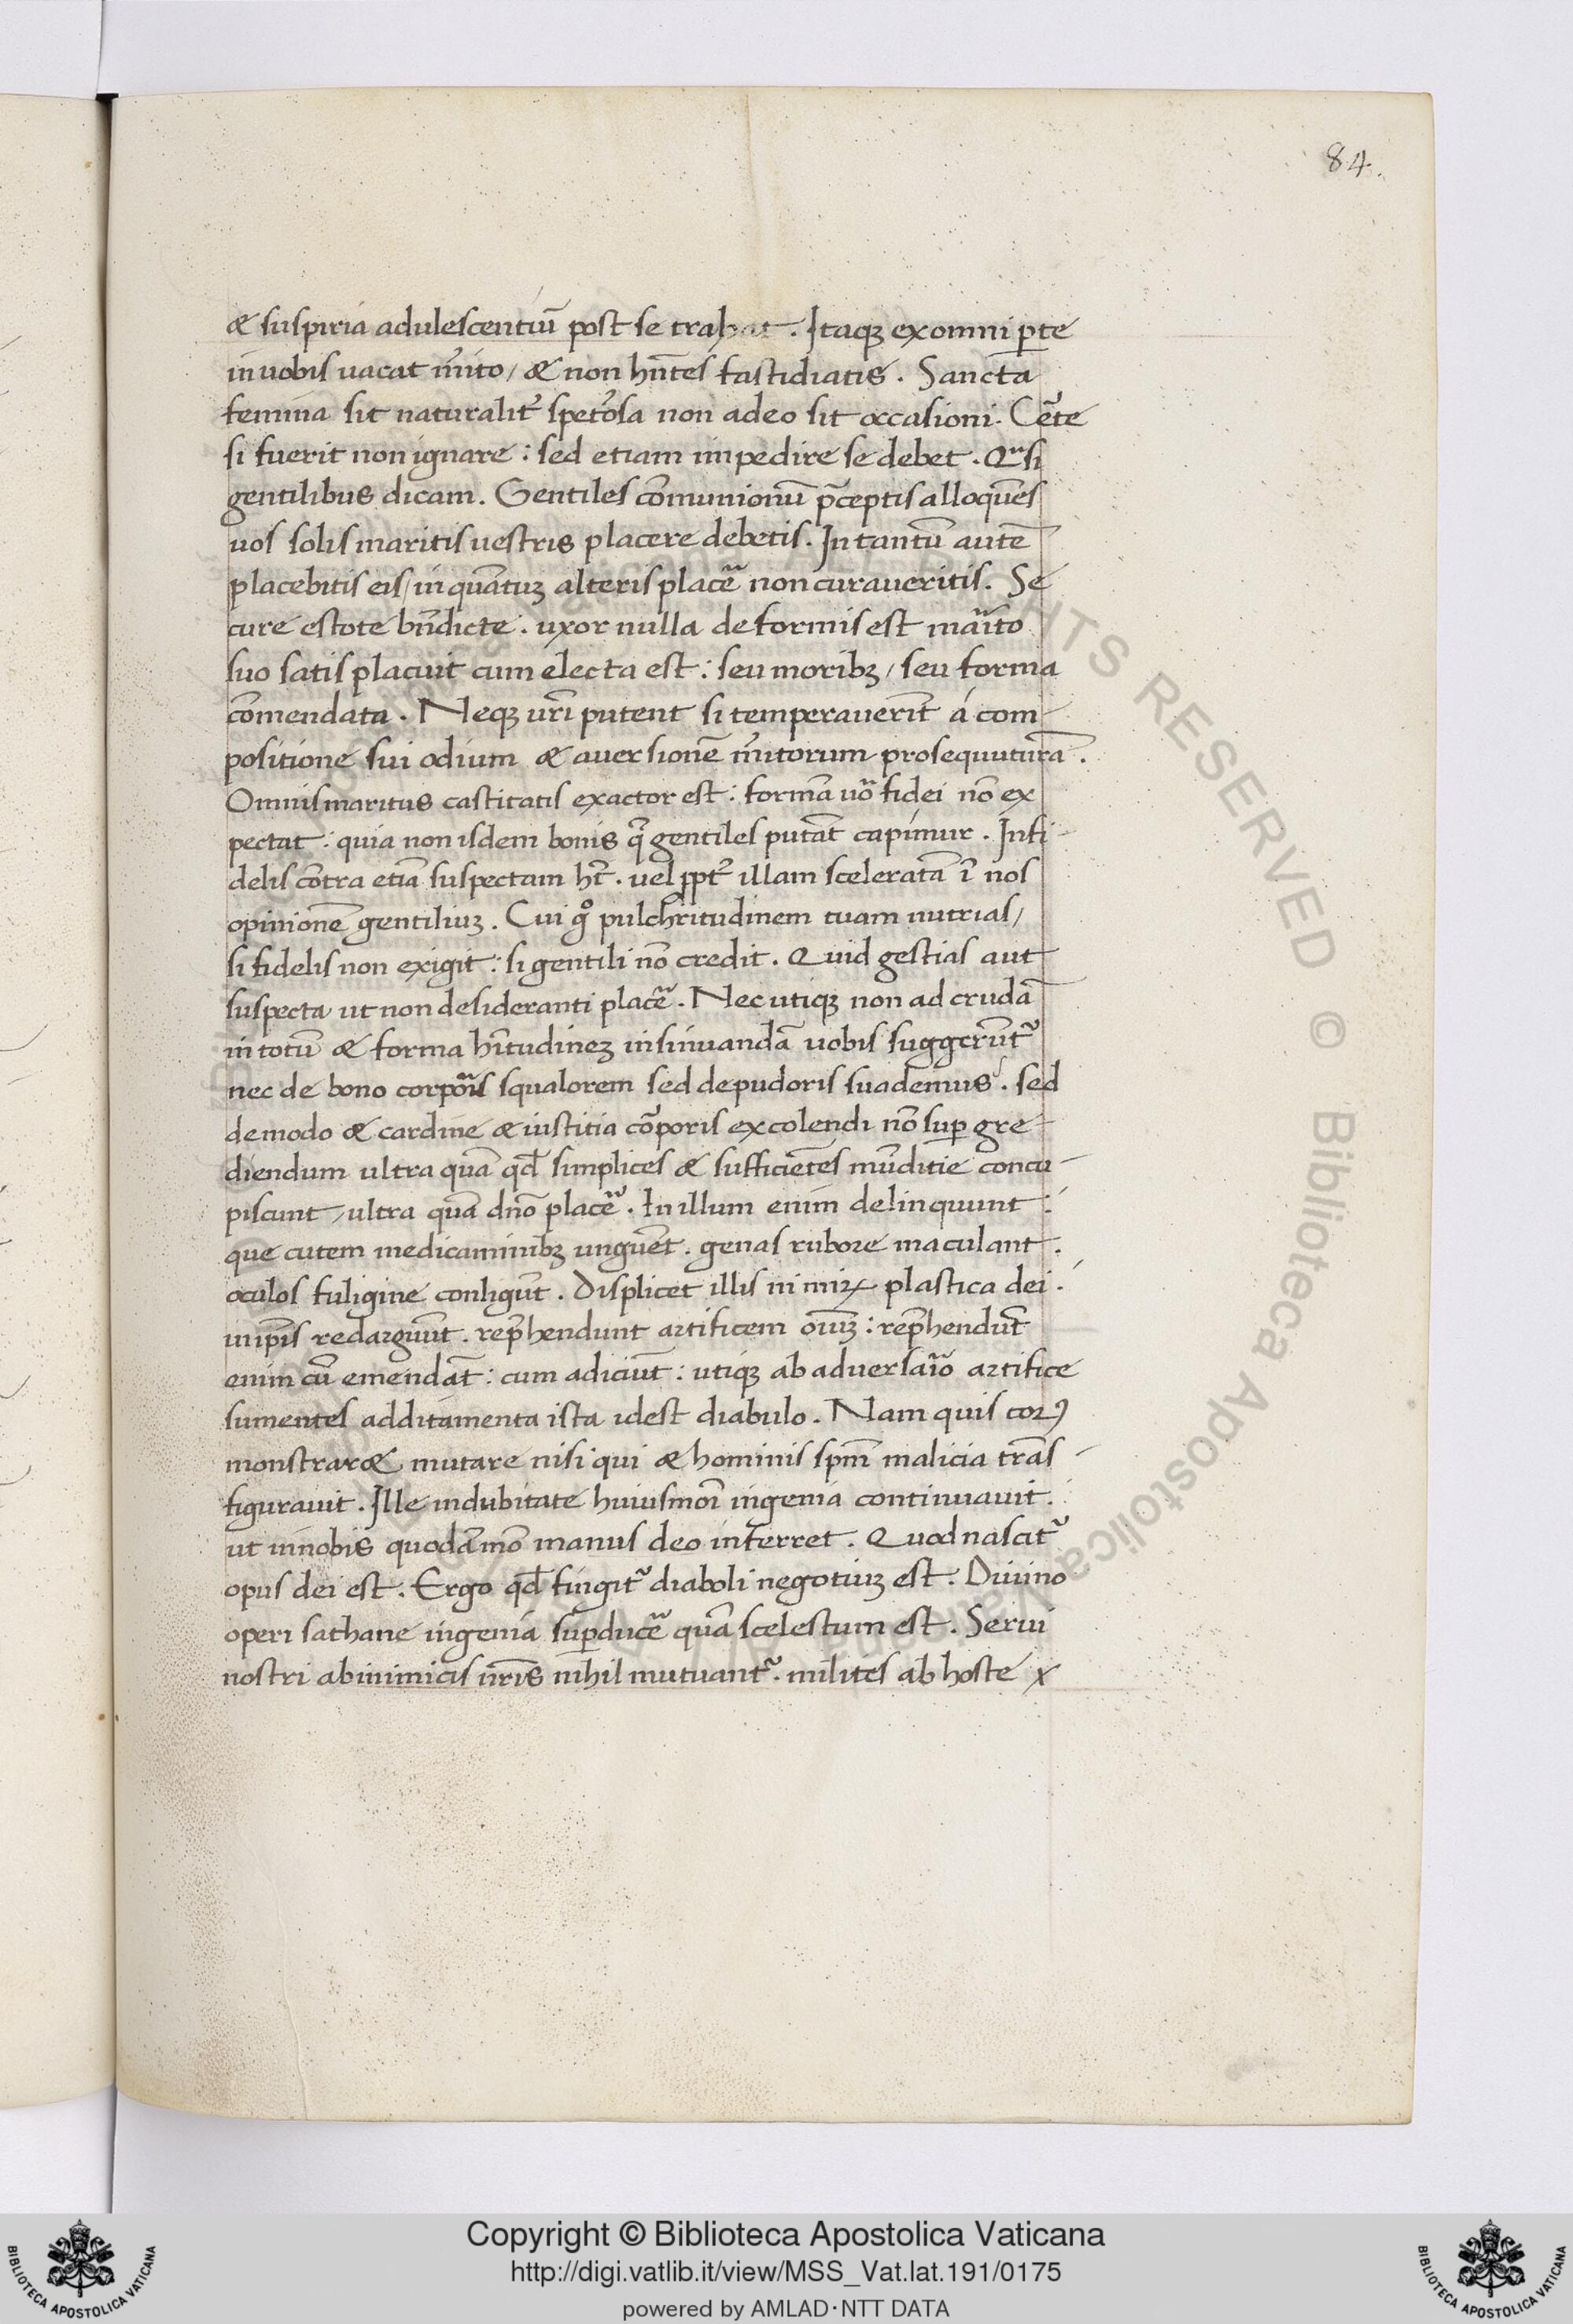 84.
& suspiria adulescentiū post se trahat. Itaqꝫ ex omni ꝑte
in uobis uacat m̃ito / & non hñtes fastidiatis. Sancta
femina sit naturalit̃ spetiõsa non adeo sit occasioni. Cẽte
si fuerit non ignare : sed etiam impedire se debet. Qͣsi
gentilibus dicam. Gentiles cõmunionũ p̃ceptis alloquẽs
uos solis maritis uestris placere debetis. In tantũ autẽ
placebitis eis / in quãtuꝫ alteris placẽ non curaueritis. Se
cure estote bñdicte. uxor nulla deformis est maĩto
suo satis placuit cum electa est : seu moribꝫ / seu forma
cõmendata. Neqꝫ ur̃i putent si temperauerĩt á com-
positione sui odium & auersionẽ m̃itorum prosequuturã.
Omnis maritus castitatis exactor est : formã uõ fidei nõ ex
pectat : quia non isdem bonis q̃ gentiles putãt capimur. Infi-
delis cõtra etiã suspectam hr̃t. uel ꝓpt̃ illam sceleratã ĩ nos
opinionẽ gentiliuꝫ. Cui gͦ pulchritudinem tuam nutrias /
si fidelis non exigit : si gentili nõ credit. Quid gestias aut
suspecta ut non desideranti placẽ. Nec utiqꝫ non ad crudã
in totũ & forma hr̃itudineꝫ insinuandã uobis suggerũt̃
nec de bono corpõis squalorem sed de pudoris suademus. sed
de modo & cardine & iustitia cõporis excolendi nõ suꝑ gre-
diendum ultra quã qđ simplices & sufficiẽtes mũditie concu-
piscunt / ultra quã dño placẽ. In illum enim delinquunt :
que cutem medicaminibꝫ unguẽt. genas rubore maculant.
oculos fuligine conligũt. Displicet illis nimiꝝ plastica dei.
in ip̃is redarguũt. rep̃hendunt artificem oĩuꝫ : rep̃hendũt
enim cũ emendãt : cum adiciũt : utiqꝫ ab aduersaĩo artifice
sumentes additamenta ista idest diabulo. Nam quis corꝯ
monstrar& mutare nisi qui & hominis sp̃m malicia trãs-
figurauit. Ille indubitate huiusmõi ingenia continuauit.
ut in nobis quodã mõ manus deo inferret. Quod nascit̃
opus dei est. Ergo qđ fingit̃ diaboli negotiuꝫ est. Diuino
operi sathane ingenia suꝑducẽ quã scelestum est. Serui
nostri ab inimicis nr̃is nihil mutuant̃. milites ab hoste x
RIGHTS RESERVED © Biblioteca Apostolica Vaticana
Copyright © Biblioteca Apostolica Vaticana
http://digi.vatlib.it/view/MSS_Vat.lat.191/0175
powered by AMLAD·NTT DATA
BIBLIOTECA APOSTOLICA VATICANA
BIBLIOTECA APOSTOLICA VATICANA